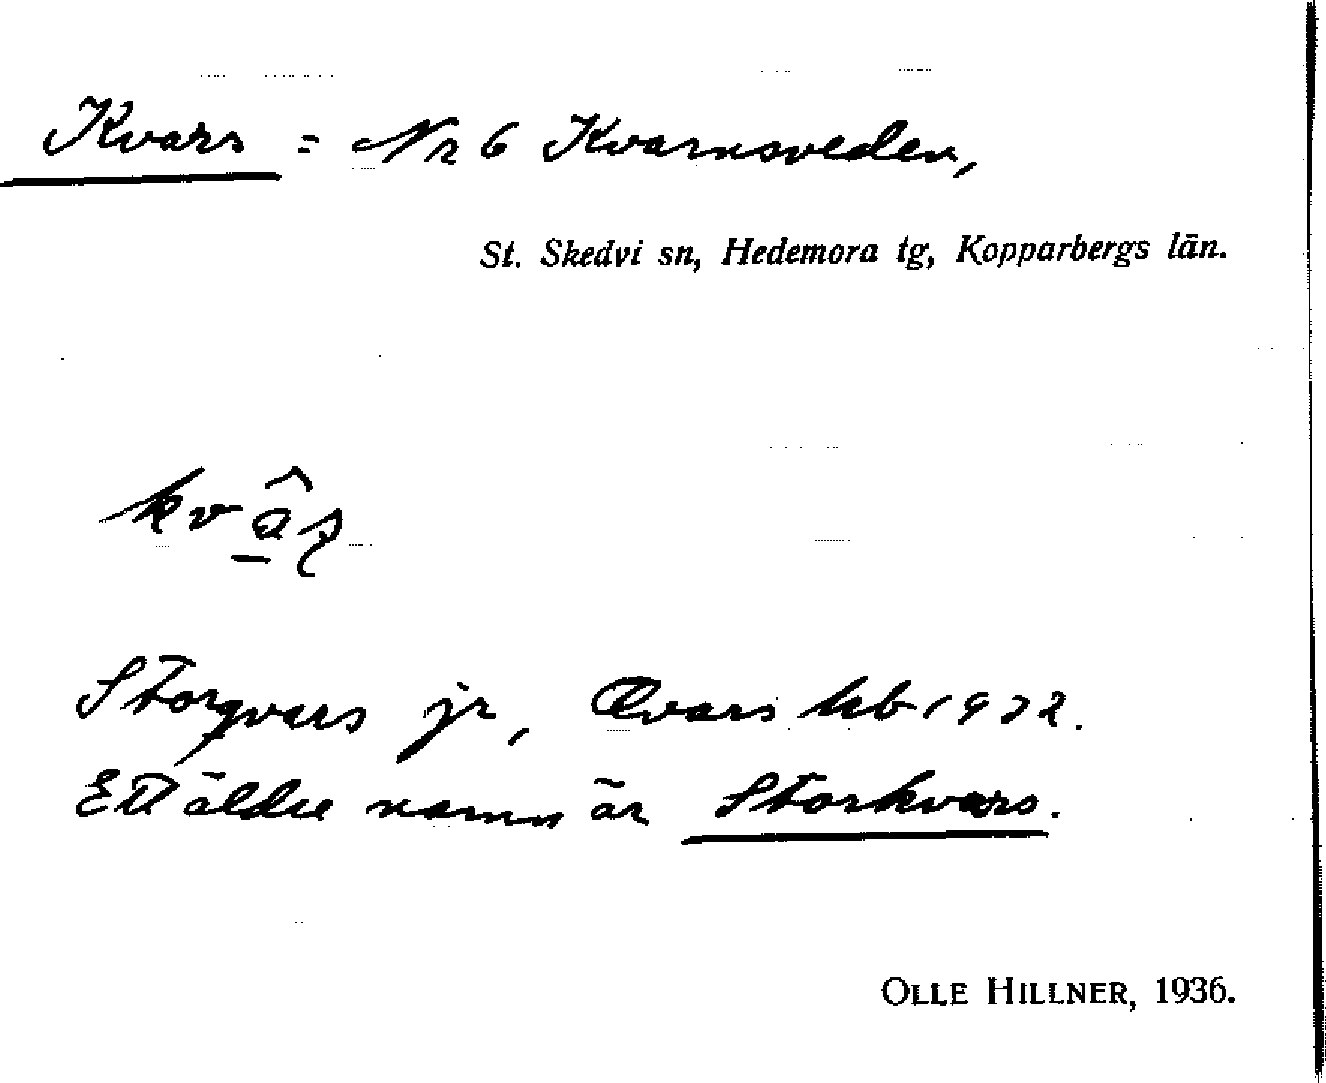 Kvars = Nr 6 Kvarnsveden,
St. Skedvi sn, Hedemora tg, Kopparbergs län.
Storqvars jr, Qvars hb 1922.
Ett äldre namn är Storkvars.
OLLE HILLNER, 1936.